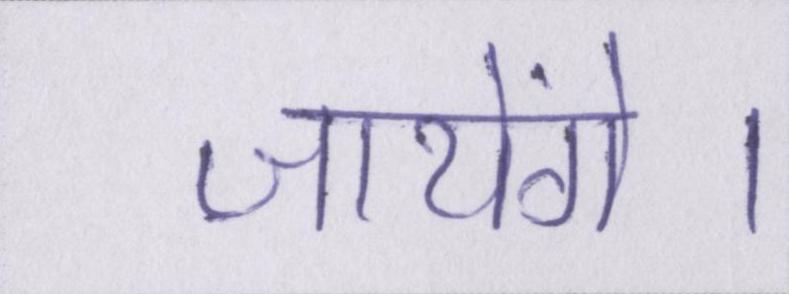 जायेंगे ।